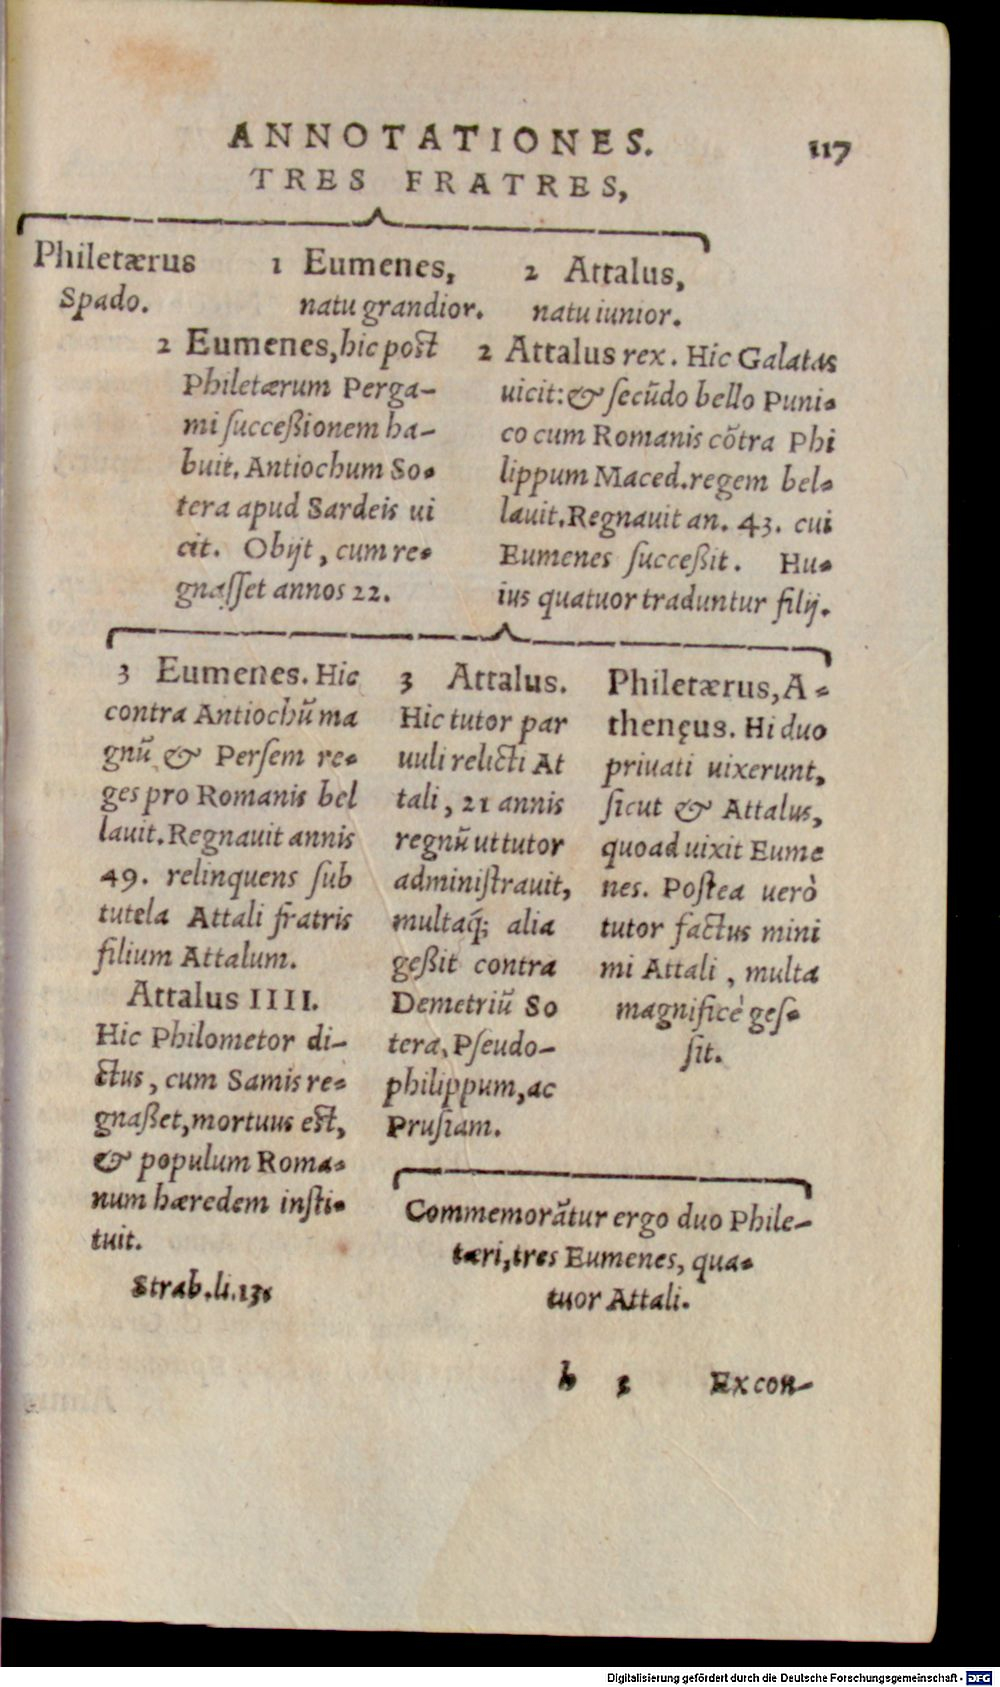 ANNOTATIONES. 117
TRES FRATRES,
Philetærus
Spado.
1 Eumenes,
natu grandior.
2 Attalus,
natu iunior.
2 Eumenes, hic post
Philetærum Perga-
mi succeßionem ha-
buit. Antiochum So-
tera apud Sardeis ui
cit. Obijt, cum re-
gnasset annos 22.
2 Attalus rex. Hic Galatas
uicit: & secūdo bello Puni-
co cum Romanis cōtra Phi
lippum Maced. regem bel-
lauit. Regnauit an. 43. cui
Eumenes succeßit. Hu-
ius quatuor traduntur filij.
3 Eumenes. Hic
contra Antiochū ma
gnū & Persem re-
ges pro Romanis bel
lauit. Regnauit annis
49. relinquens sub
tutela Attali fratris
filium Attalum.
Attalus IIII.
Hic Philometor di-
ctus, cum Samis re-
gnaßet, mortuus est,
& populum Roma-
num hæredem insti-
tuit.
Strab. li. 13.
3 Attalus.
Hic tutor par
uuli relicti At
tali, 21 annis
regnū ut tutor
administrauit,
multaq́; alia
geßit contra
Demetriū So
tera, Pseudo-
philippum, ac
Prusiam.
Philetærus, A-
thenęus. Hi duo
priuati uixerunt,
sicut & Attalus,
quoad uixit Eume
nes. Postea uerò
tutor factus mini
mi Attali, multa
magnificè ges-
sit.
Commemorātur ergo duo Phile-
tæri, tres Eumenes, qua-
tuor Attali.
h 3 Ex con-
Digitalisierung gefördert durch die Deutsche Forschungsgemeinschaft - DFG